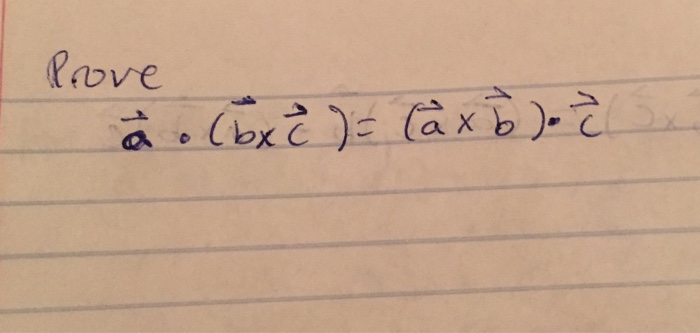 Prove
a⃗ · (b⃗ x c⃗) = (a⃗ x b⃗) · c⃗